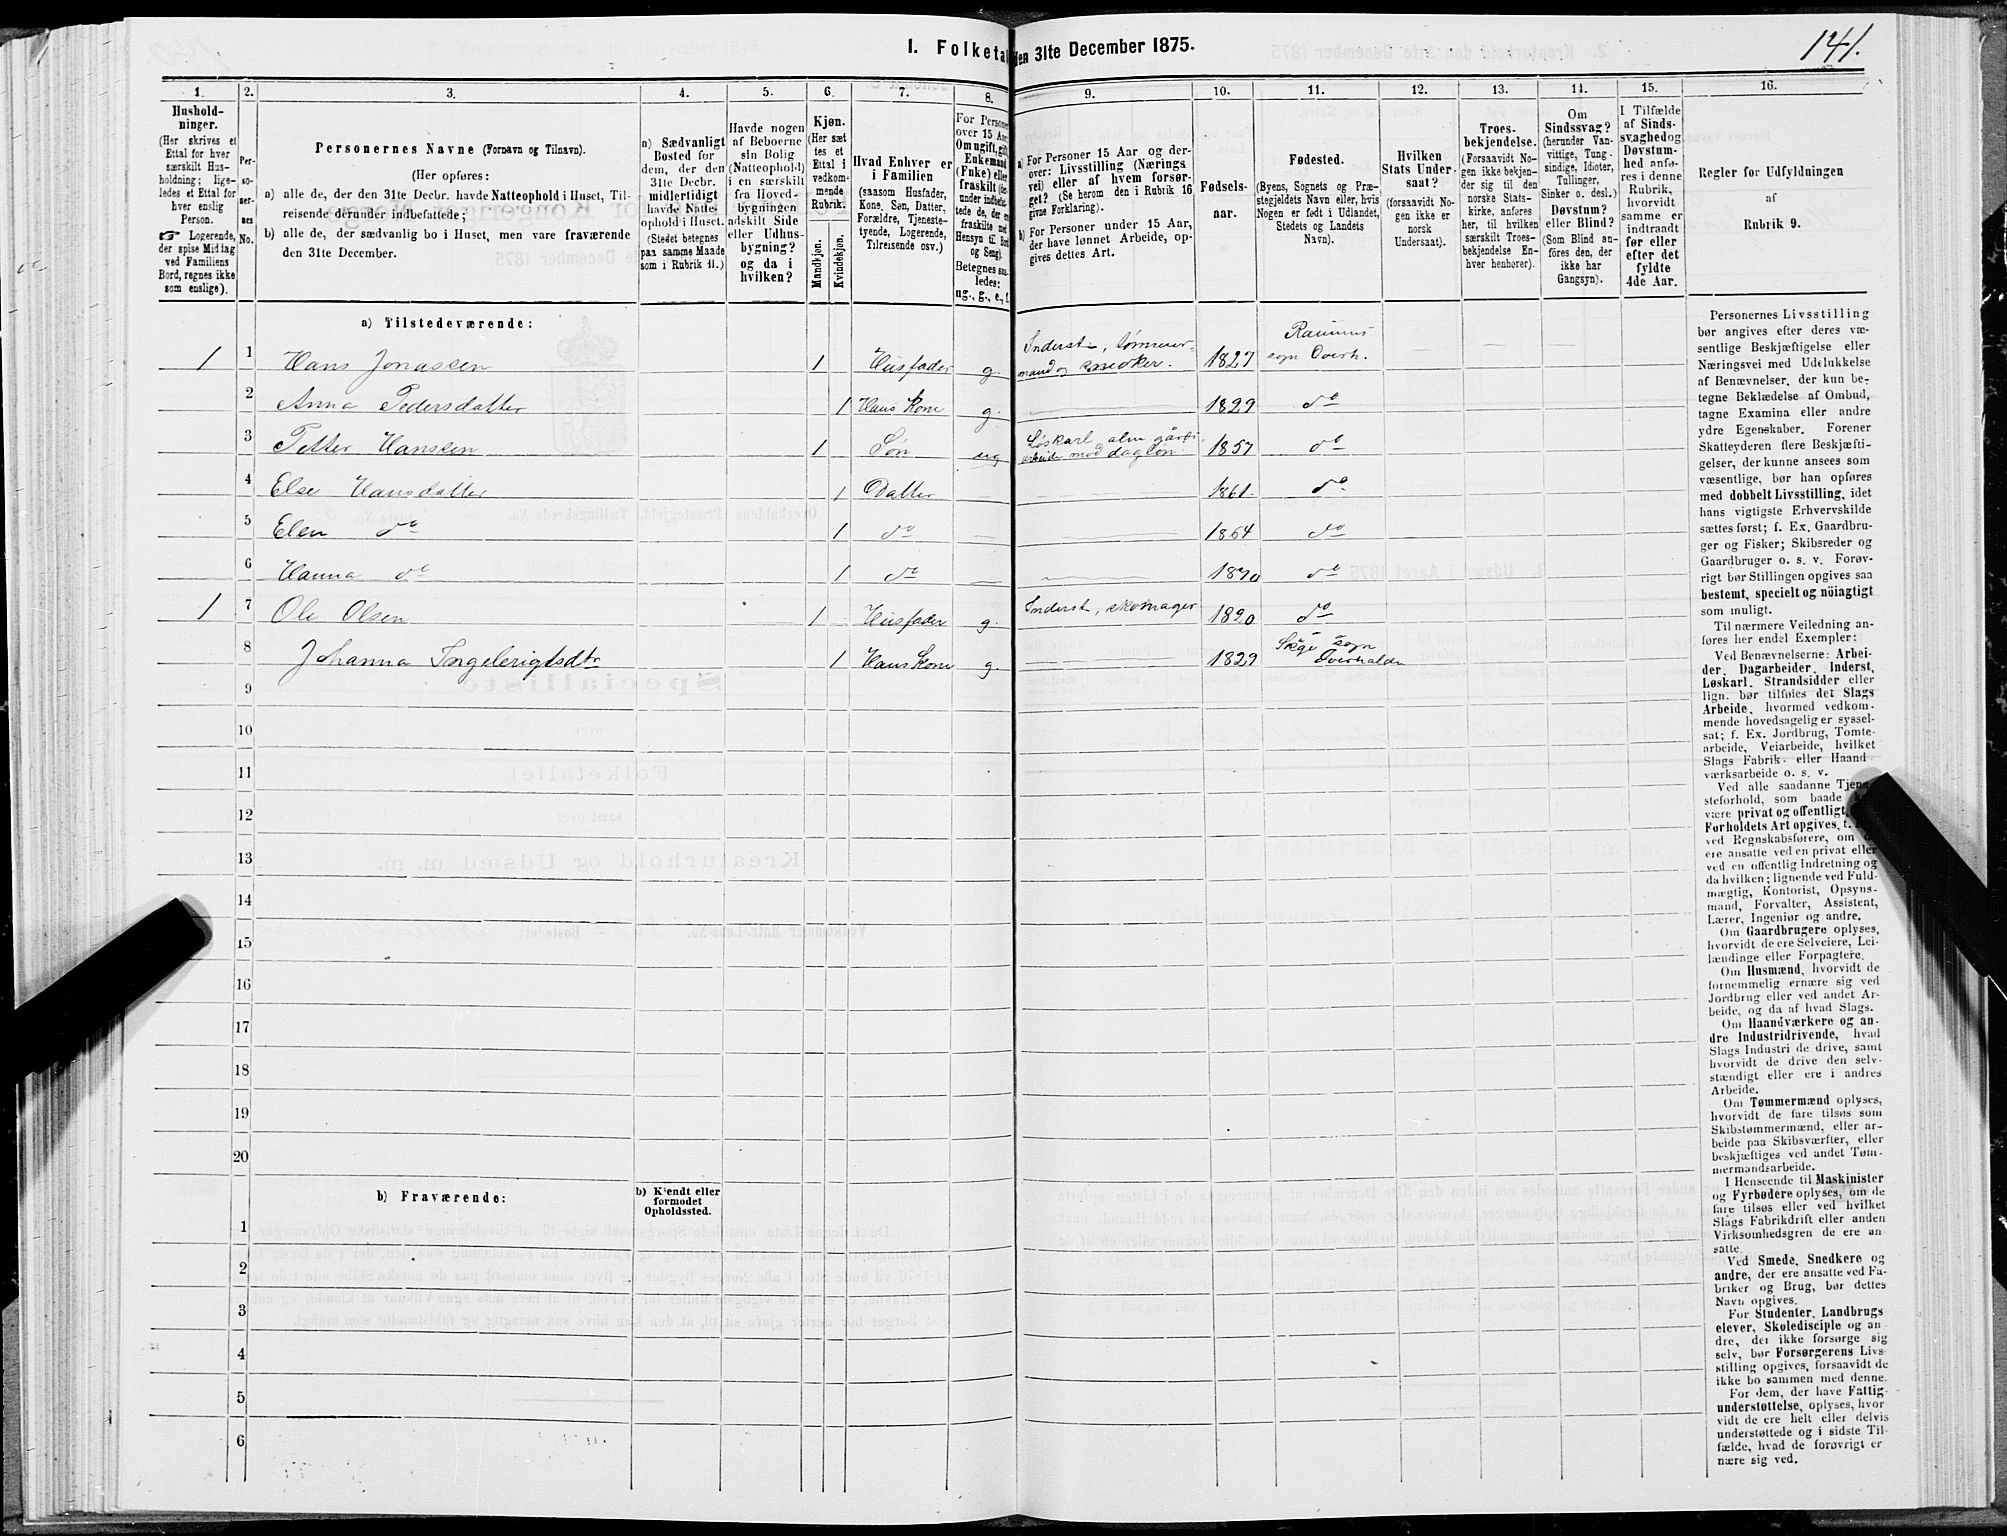 141.
1. Folketal den 31te December 1875.
1. 2. 3. 4. 5. 6. 7. 8. 9. 10. 11. 12. 13. 14. 15. 16.
Hushold-
ninger.
(Her skrives et
Ettal for hver
særskilt Hus-
holdning; lige-
ledes et Ettal for
hver enslig
Person.
☞ Logerende,
der spise Middag
ved Familiens
Bord, regnes ikke
som enslige).
Per-
so-
ner-
nes
No.
Personernes Navne (Fornavn og Tilnavn).
(Her opføres:
a) alle de, der den 31te Decbr. havde Natteophold i Huset, Til-
reisende derunder indbefattede;
b) alle de, der sædvanlig bo i Huset, men vare fraværende
den 31te December.
a) Sædvanligt
Bosted for
dem, der den
31te Decbr.
midlertidigt
havde Natte-
ophold i Huset.
(Stedet betegnes
paa samme Maade
som i Rubrik 11.)
Havde nogen
af Beboerne
sin Bolig
(Natteophold)
i en særskilt
fra Hoved-
bygningen
adskilt Side
eller Udhus-
bygning?
og da i
hvilken?
Kjøn.
(Her sæt-
tes et
Ettal i
vedkom-
mende
Rubrik.
Mandkjøn.
Kvindekjøn.
Hvad Enhver er
i Familien
(saasom Husfader,
Kone, Søn, Datter,
Forældre, Tjeneste-
tyende, Logerende,
Tilreisende osv.)
For Personer
over 15 Aar:
Om ugift, gift,
Enkemand
(Enke) eller
fraskilt
Betegnes saa-
ledes:
ug., g., e., f.
a) For Personer 15 Aar og der-
over: Livsstilling (Nærings
vei) eller af hvem forsør-
get? (Se herom den i Rubrik 16
givne Forklaring).
b) For Personer under 15 Aar,
der have lønnet Arbeide, op-
gives dettes Art.
Fødsels-
aar.
Fødested.
(Byens, Sognets og Præ-
stegjeldets Navn eller, hvis
Nogen er født i Udlandet,
Stedets og Landets
Navn).
Hvilken
Stats Under-
saat?
(forsaavidt No-
gen ikke er
norsk
Undersaat).
Troes-
bekjendelse.
(Forsaavidt No-
gen ikke bekjen-
der sig til den
norske Stats-
kirke, anføres
her, til hvilken
særskilt Troes-
bekjendelse En-
hver henhører).
Om
Sindssvag?
(herunder Van-
vittige, Tung-
sindige, Idioter,
Tullinger,
Sinker o. desl.)
Døvstum?
eller Blind?
(Som Blind an-
føres den, der
ikke har
Gangsyn).
I Tilfælde
af Sinds-
svaghed og
Døvstum-
hed anfø-
res i denne
Rubrik,
hvorvidt
samme er
indtraadt
før eller
efter det
fyldte
4de Aar.
Regler for Udfyldningen
af
Rubrik 9.
a) Tilstedeværende:
1 1 Hans Jonassen 1 Husfader g. Inderst, tømmer-
mand og snedker. 1827 Ranums
sogn Overh.
2 Anna Pedersdatter 1 Hans Kone g. 1829 do
3 Petter Hanssen 1 Søn ug Løskarl, alm gårds-
arbeide mod dagløn. 1857 do
4 Else Hansdatter 1 Datter 1861. do
5 Elen do 1 do 1864 do
6 Hanna do 1 do 1870 do
1 7 Ole Olsen 1 Husfader g. Inderst, skomager 1820 do
8 Johanna Ingelerigtsdtr 1 Hans Kone g. 1829 Skge sogn
Overhalden
9
10
11
12
13
14
15
16
17
18
19
20
b) Fraværende:
b) Kjendt eller
formodet
Opholdssted.
1
2
3
4
5
6
Personernes Livsstilling
bør angives efter deres væ-
sentlige Beskjæftigelse eller
Næringsvei med Udelukkelse
af Benævnelser, der kun be-
tegne Beklædelse af Ombud,
tagne Examina eller andre
ydre Egenskaber. Forener
Skatteyderen flere Beskjæfti-
gelser, der kunne ansees som
væsentlige, bør han opføres
med dobbelt Livsstilling, idet
hans vigtigste Erhvervskilde
sættes først; f. Ex. Gaardbru-
ger og Fisker; Skibsreder og
Gaardbruger o. s. v. Forøv-
rigt bør Stillingen opgives saa
bestemt, specielt og nöiagtigt
som muligt.
Til nærmere Veiledning an-
føres her endel Exempler:
Ved Benævnelserne: Arbei-
der, Dagarbeider, Inderst,
Løskarl, Strandsidder eller
lign. bør tilføies det Slags
Arbeide, hvormed vedkom-
mende hovedsagelig er syssel-
sat; f. Ex. Jordbrug, Tomte-
arbeide, Veiarbeide, hvilket
Slags Fabrik- eller Haand-
værksarbeide o. s. v.
Ved alle saadanne Tjene-
steforhold, som baade
være privat og offentligt,
Forholdets Art opgives,
ved Regnskabsførere, om
ere ansatte ved en privat eller
ved en offentlig Indretning og
da hvilken; lignende ved Fuld-
mægtig, Kontorist, Opsyns-
mand, Forvalter, Assistent,
Lærer, Ingeniør og andre.
Om Gaardbrugere oplyses,
hvorvidt de ere Selveiere, Lei-
lændinge eller Forpagtere.
Om Husmænd, hvorvidt de
fornemmelig ernære sig ved
Jordbrug eller ved andet Ar-
beide, og da af hvad Slags.
Om Haandværkere og an-
dre Industridrivende, hvad
Slags Industri de drive, samt
hvorvidt de drive den selv-
stændigt eller ere i andres
Arbeide.
Om Tømmermænd oplyses,
hvorvidt de fare tilsøs som
Skibstømmermænd, eller ar-
beide paa Skibsværfter, eller
beskjæftiges ved andet Tøm-
mermandsarbeide.
I Henseende til Maskinister
og Fyrbødere oplyses, om de
fare tilsøs eller ved hvilket
Slags Fabrikdrift eller anden
Virksomhedsgren de ere an-
satte.
Ved Smede, Snedkere og
andre, der ere ansatte ved Fa-
briker og Brug, bør dettes
Navn opgives.
For Studenter, Landbrugs
elever, Skoledisciple og an-
dre, der ikke forsørge sig
selv, bør Forsørgerens Livs-
stilling opgives, forsaavidt de
ikke bo sammen med denne.
For dem, der have Fattig-
understøttelse, oplyses, hvor-
vidt de ere helt eller delvis
understøttede og i sidste Til-
fælde, hvad de forøvrigt er
nære sig ved.